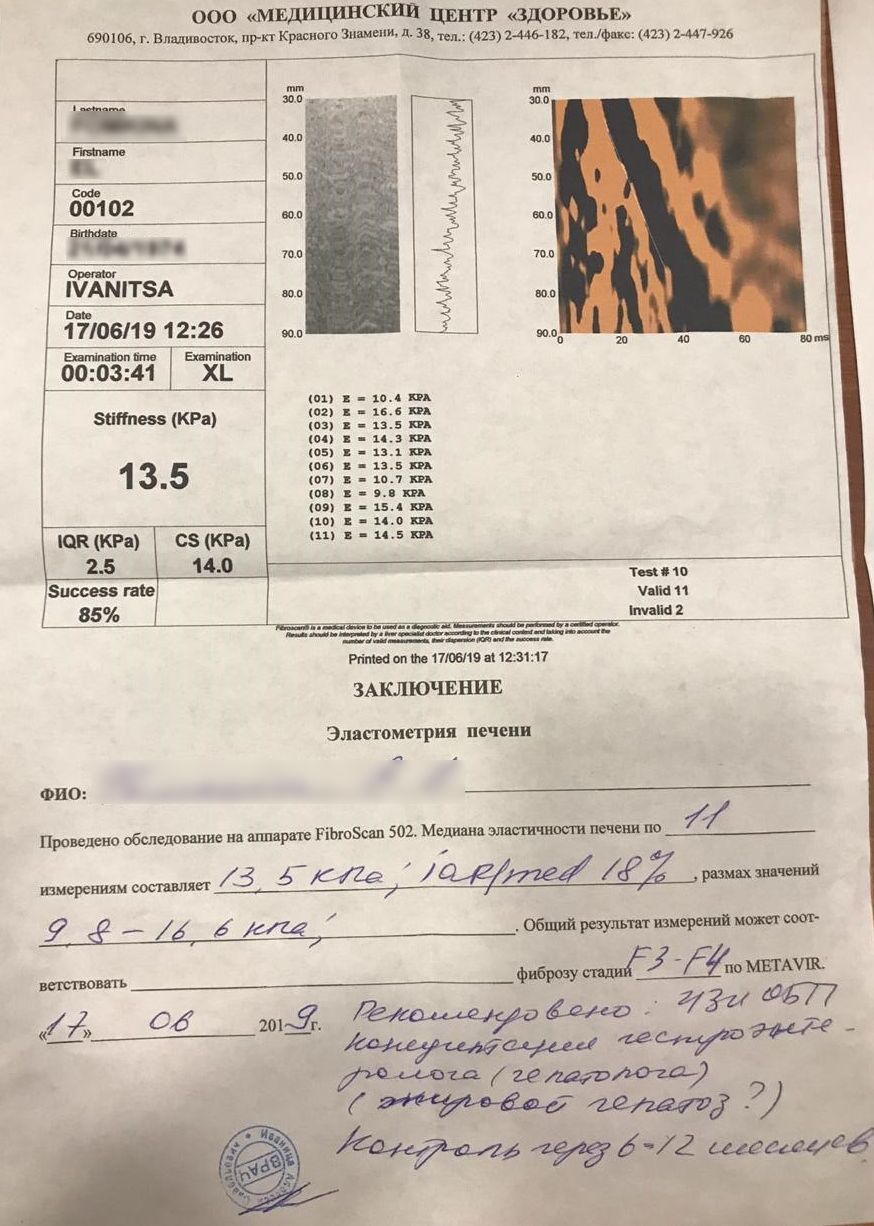 ООО «МЕДИЦИНСКИЙ ЦЕНТР «ЗДОРОВЬЕ»
690106, г. Владивосток, пр-кт Красного Знамени, д. 38, тел.: (423) 2-446-182, тел./факс: (423) 2-447-926
Lastname
Firstname
Code
00102
Birthdate
Operator
IVANITSA
Date
17/06/19 12:26
Examination time
00:03:41
Examination
XL
Stiffness (KPa)
13.5
IQR (KPa)
2.5
CS (KPa)
14.0
Success rate
85%
mm
30.0
40.0
50.0
60.0
70.0
80.0
90.0
mm
30.0
40.0
50.0
60.0
70.0
80.0
90.0
0 20 40 60 80 ms
(01) E = 10.4 KPA
(02) E = 16.6 KPA
(03) E = 13.5 KPA
(04) E = 14.3 KPA
(05) E = 13.1 KPA
(06) E = 13.5 KPA
(07) E = 10.7 KPA
(08) E = 9.8 KPA
(09) E = 15.4 KPA
(10) E = 14.0 KPA
(11) E = 14.5 KPA
Test # 10
Valid 11
Invalid 2
Fibroscan® is a medical device to be used as a diagnostic aid. Measurements should be performed by a certified operator.
Results should be interpreted by a liver specialist doctor according to the clinical context and taking into account the
number of valid measurements, their dispersion (IQR) and the success rate.
Printed on the 17/06/19 at 12:31:17
ЗАКЛЮЧЕНИЕ
Эластометрия печени
ФИО:
Проведено обследование на аппарате FibroScan 502. Медиана эластичности печени по 11
измерениям составляет 13,5 кПа; iQR/med 18%, размах значений
9,8 – 16,6 кПа; . Общий результат измерений может соот-
ветствовать фиброзу стадии F3-F4 по METAVIR.
«17» 06 2019 г. Рекомендовано: УЗИ ОБП
консультация гастроэнте-
ролога (гепатолога)
(жировой гепатоз?)
Контроль через 6-12 месяцев
Иваница
ВРАЧ